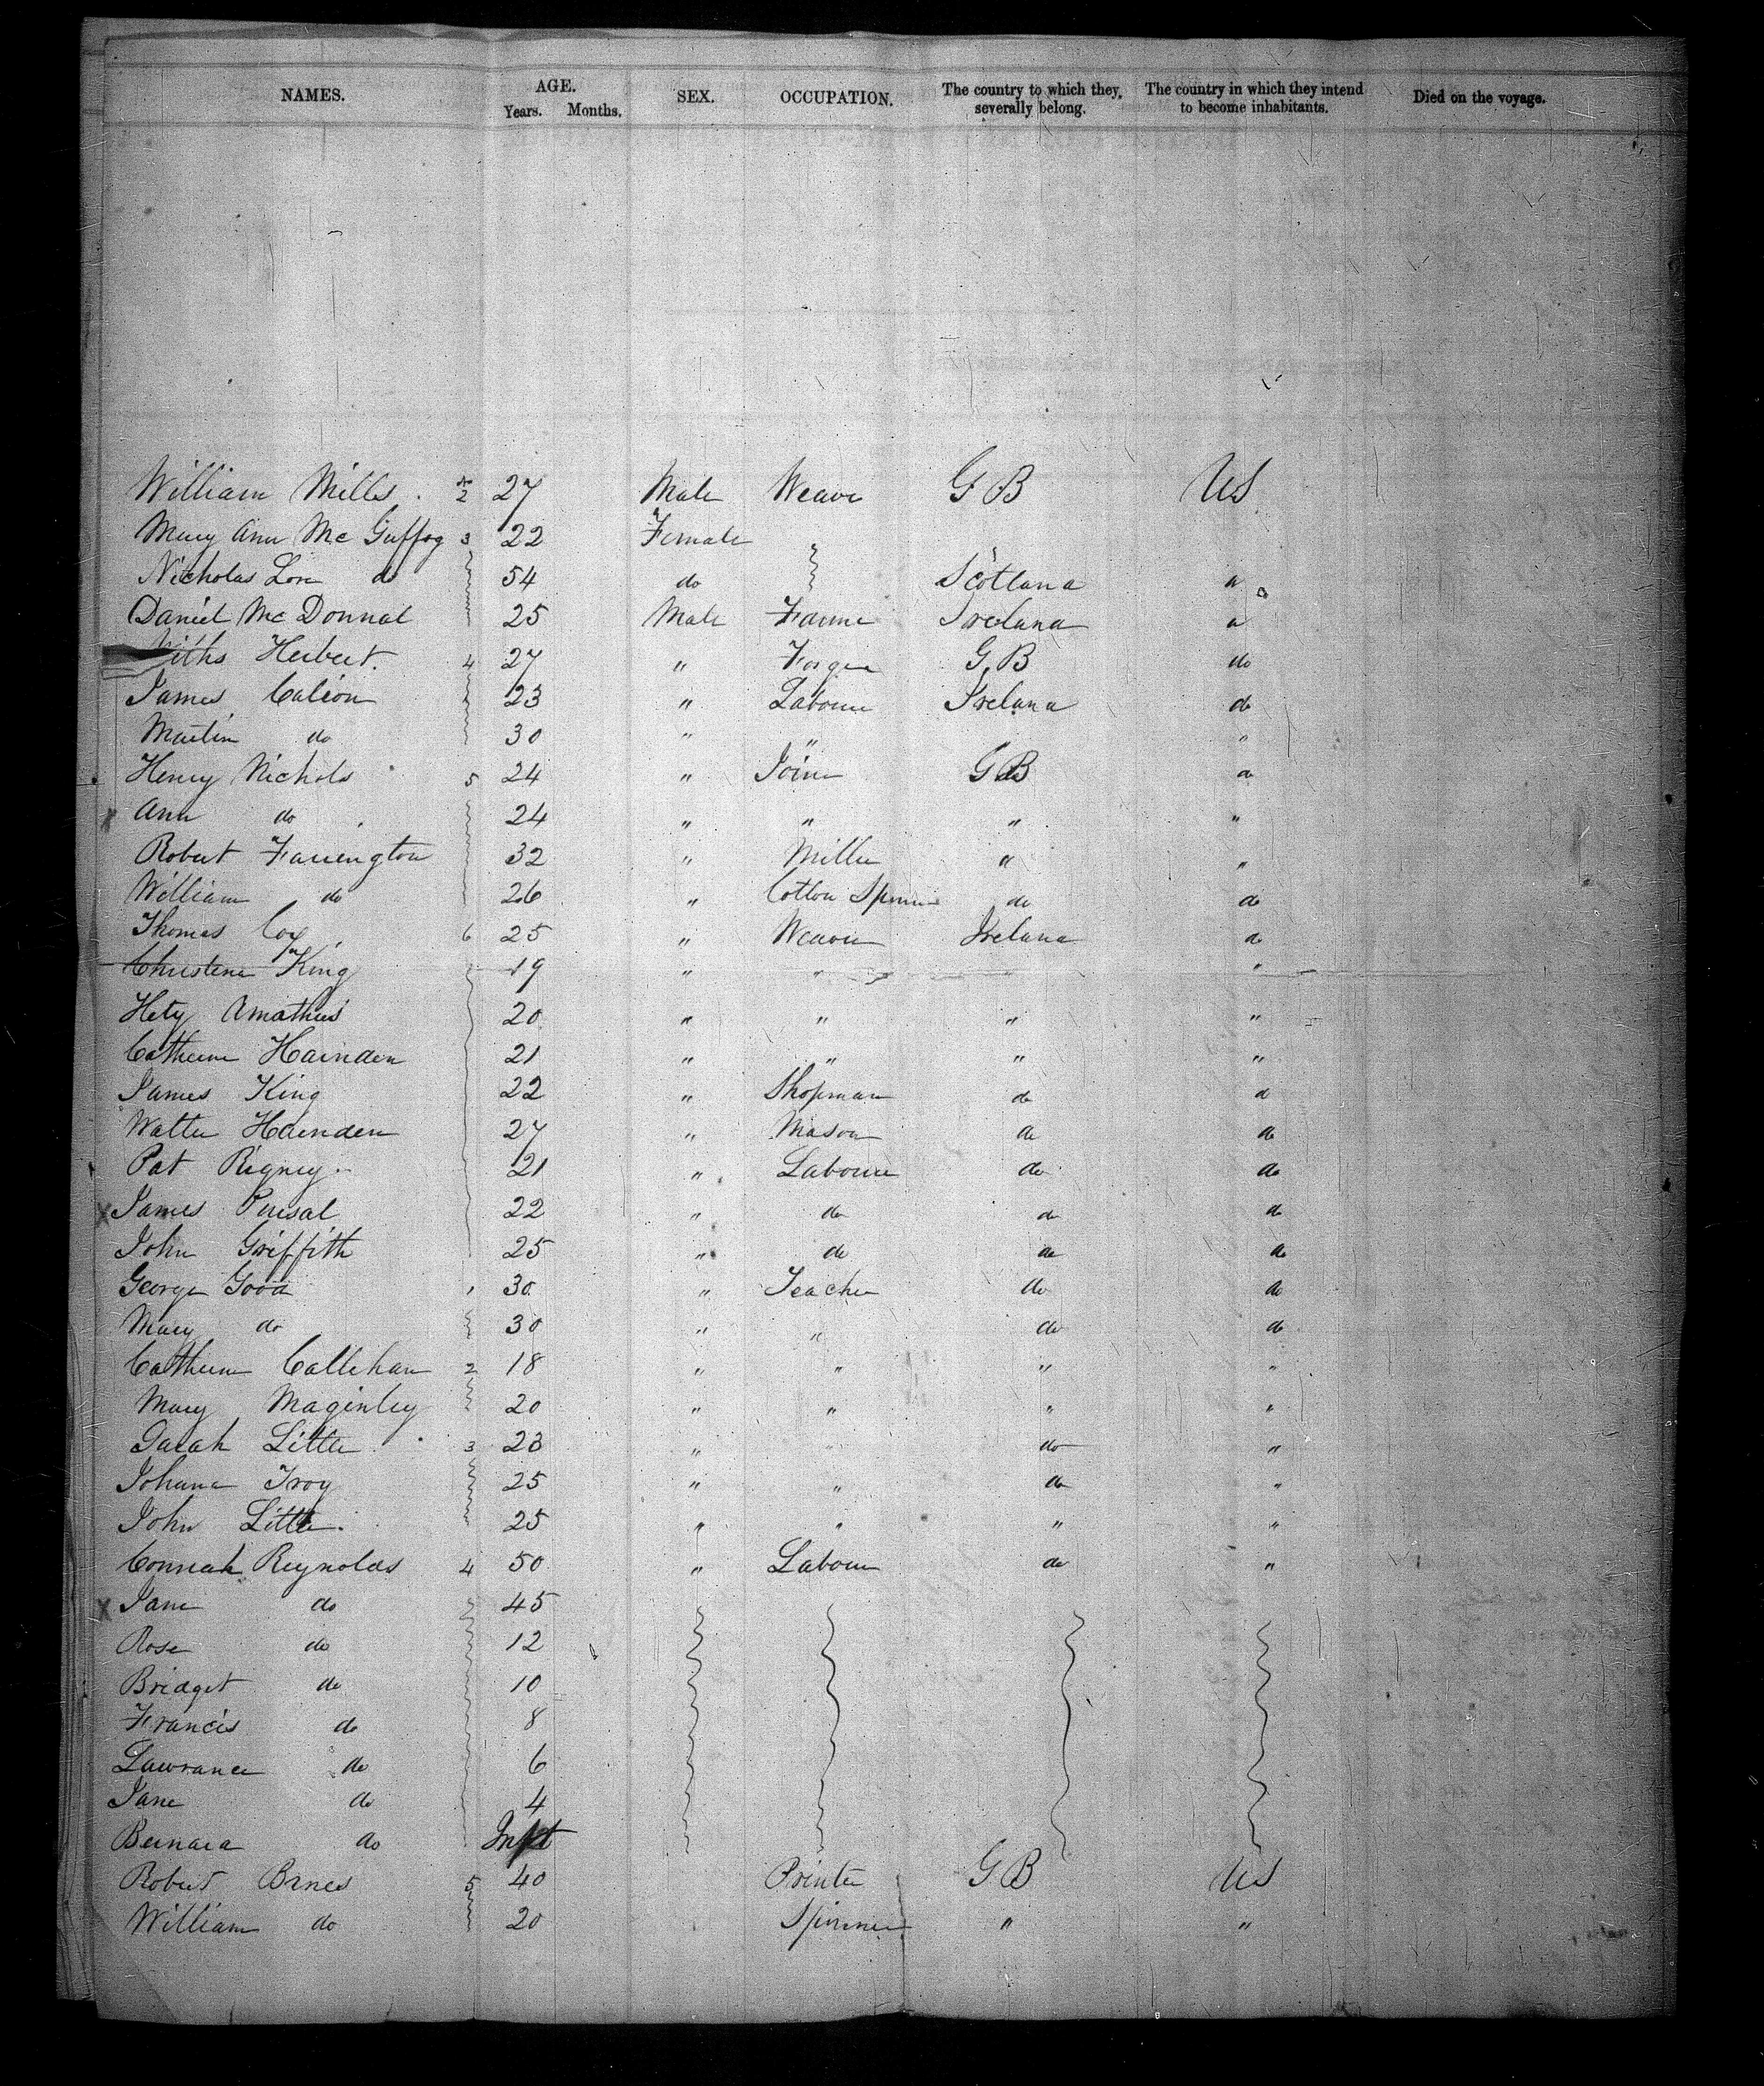 NAMES. AGE. Years. Months. SEX. OCCUPATION. The country to which they severally belong. The country in which they intend to become inhabitants. Died on the voyage.
William Mills . 2 27 Male Weaver G B US
Mary Ann Mc Guffog 3 22 Female
Nicholas Love do 54 do Scotland
Daniel Mc Donnal 25 Male Farmer Ireland
Herbert. 4 27 " G B do
James Calion 23 " Labourer Ireland do
Martin do 30 " " "
Henry Nichols 5 24 " Joiner G B do
Ann do 24 " " " "
Robert Farrington 32 " Miller " "
William do 26 " Cotton Spinner do do
Thomas Cox 6 25 " Weaver Ireland do
Christina King 19 " " " "
Hety Amathus 20 " " " "
Catherine Hainden 21 " " " "
James King 22 " Shopman do do
Walter Hainden 27 " Mason do do
Pat Rigney 21 " Labourer do do
X James Pursal 22 " do do do
John Griffith 25 " do do do
George Good 1 30 " Teacher do do
Mary do 30 " " do do
Catherine Callehan 2 18 " " " "
Mary Maginley 20 " " " "
Sarah Little 3 23 " " do "
Johana Troy 25 " " do "
John Little. 25 " " " "
Connah Reynolds 4 50 " Labourer do "
X Jane do 45
Rose do 12
Bridget do 10
Francis do 8
Lawrance do 6
Jane do 4
Bernard do Inft
Robert Brnes 5 40 Printer G B US
William do 20 Spinner " "